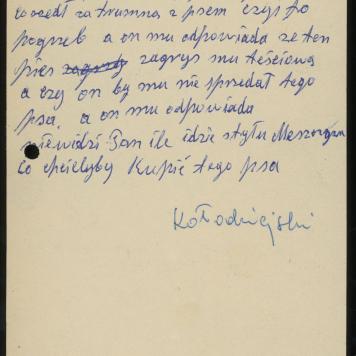 co szedł za trumna z psem czyj to
pogrzeb a on mu odpowiada ze ten
pies zagryz mu teściowa
a czy on by mu nie sprzedał tego
psa a on mu odpowiada
niewidzi Pan ile idzie styłu
co chcieliby Kupić tego psa
Kołodziejski